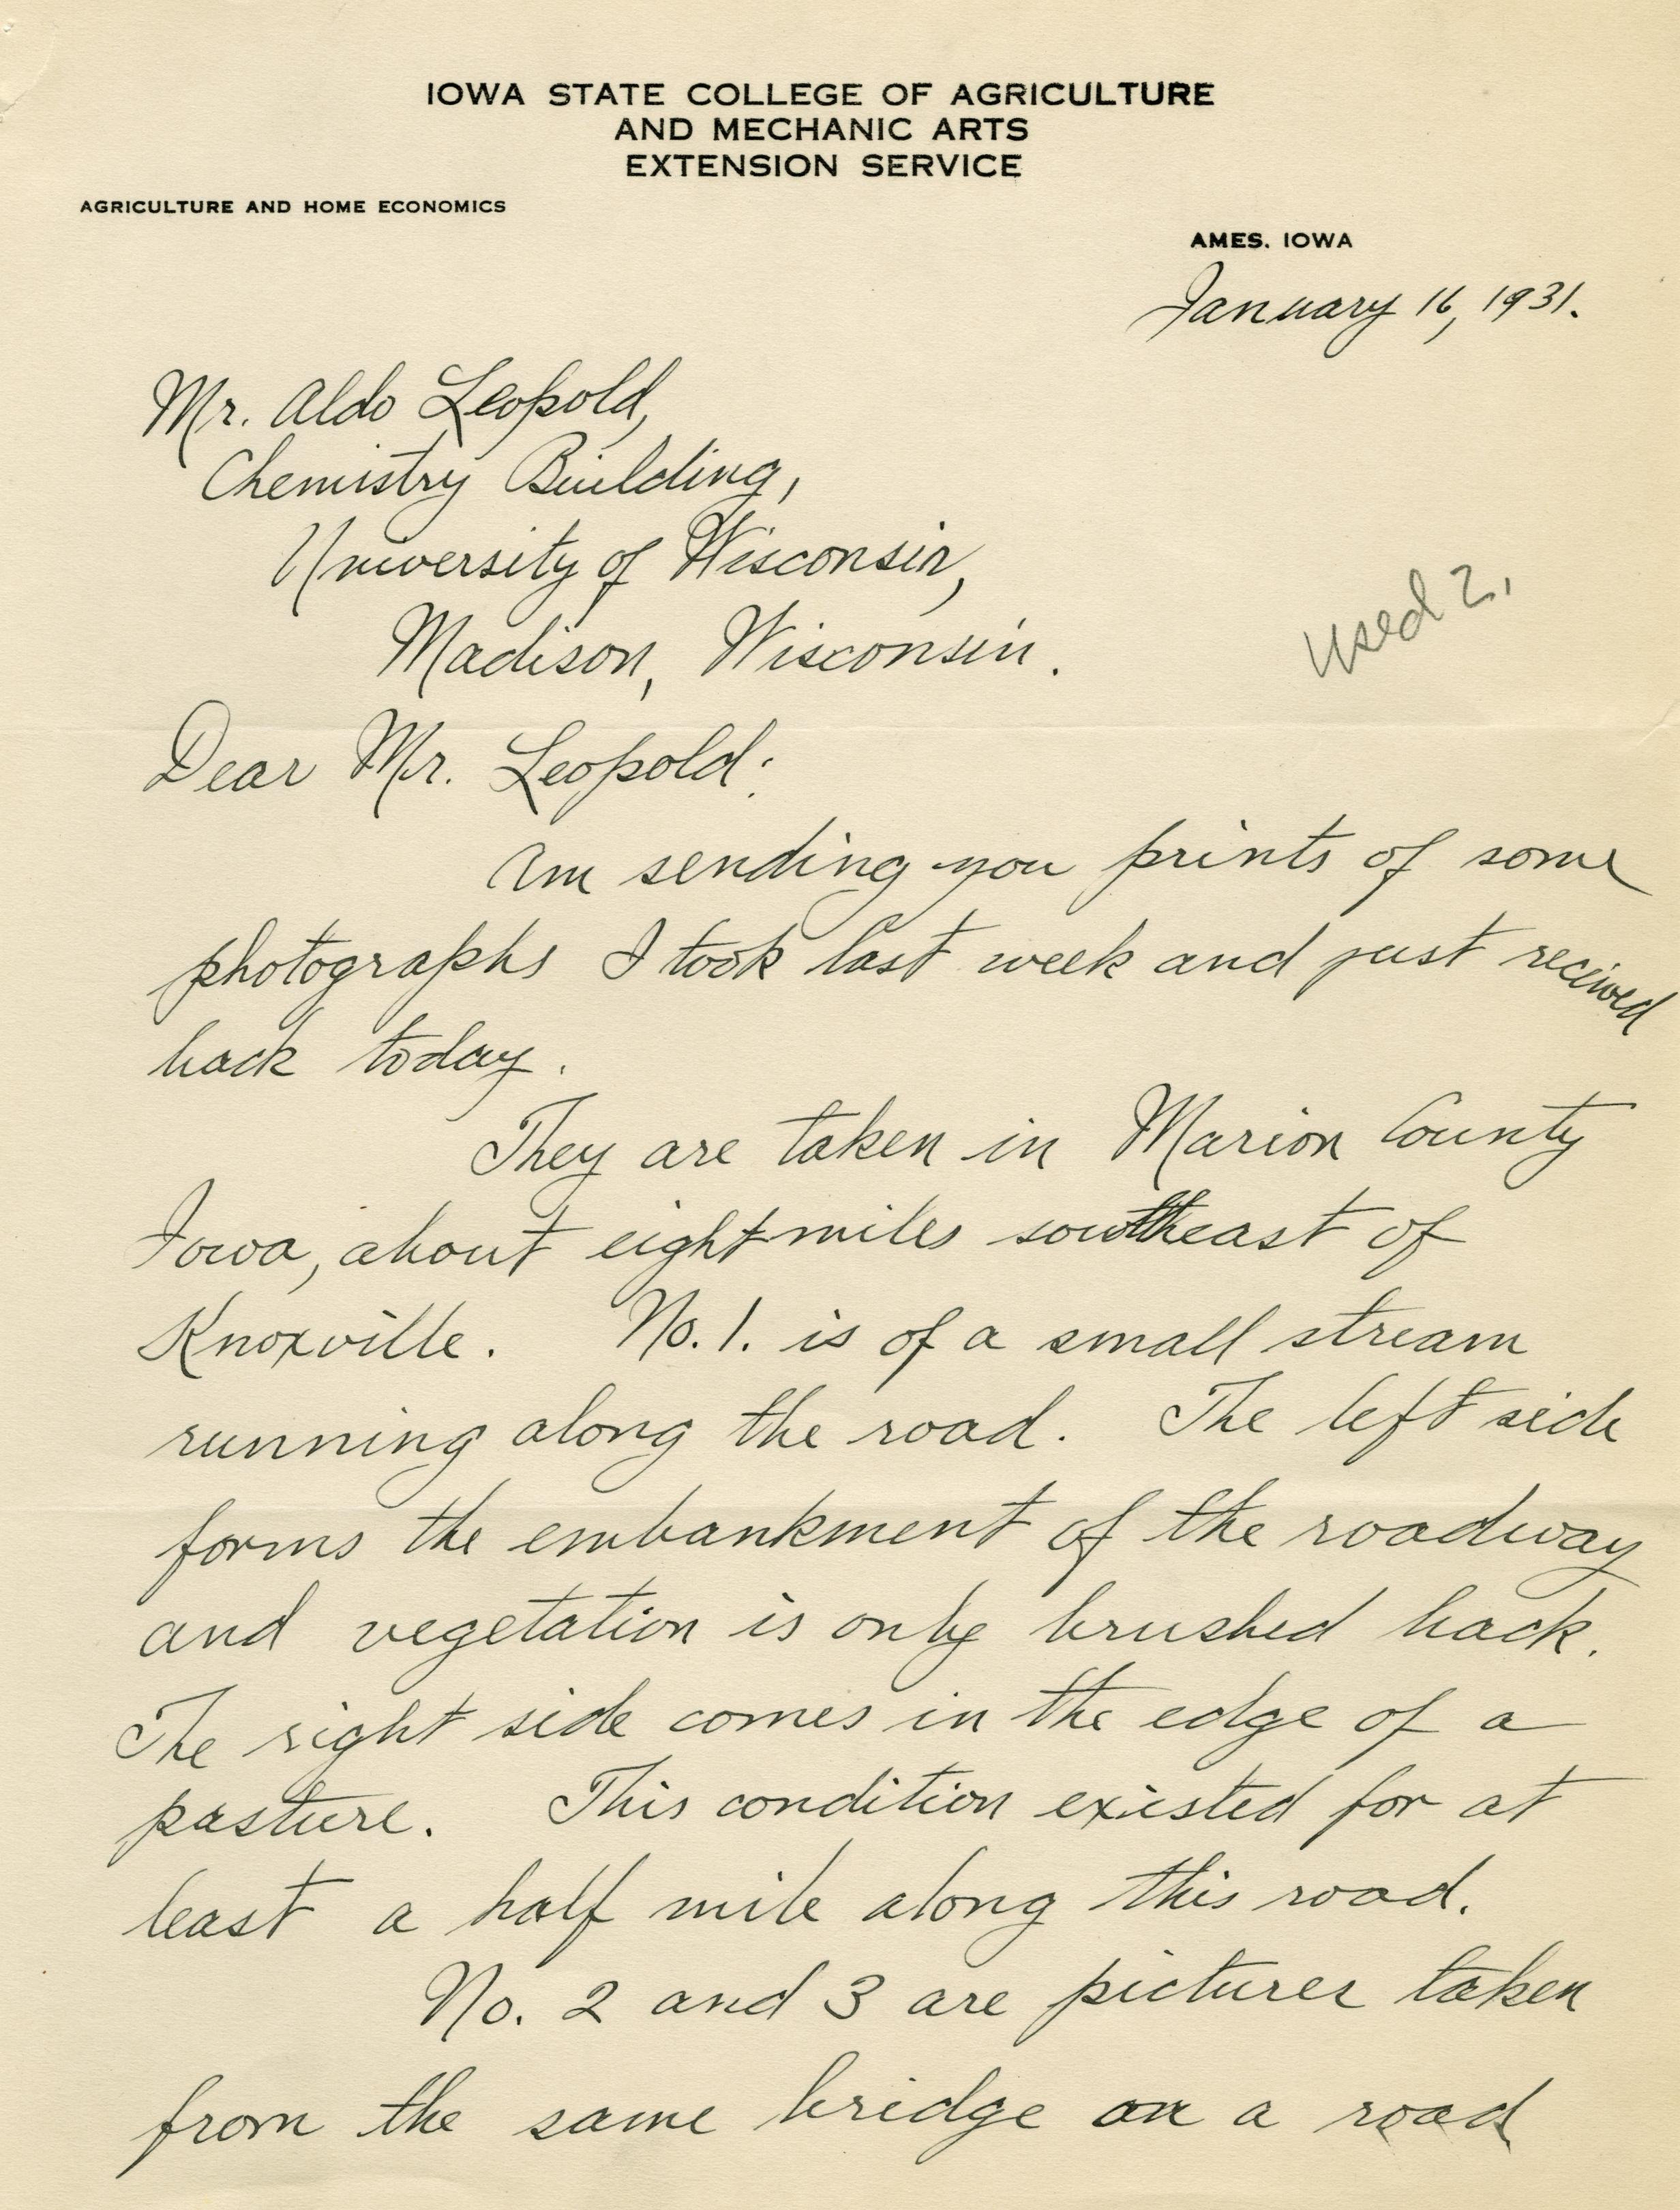 IOWA STATE COLLEGE OF AGRICULTURE
AND MECHANIC ARTS
EXTENSION SERVICE
AGRICULTURE AND HOME ECONOMICS
AMES, IOWA
January 16, 1931.
Mr. Aldo Leopold,
Chemistry Building,
University of Wisconsin,
Madison, Wisconsin.
Used 2.
Dear Mr. Leopold:
Am sending you prints of some
photographs I took last week and just recived
back today.
They are taken in Marion County
Iowa, about eight miles southeast of
Knoxville. No. 1. is of a small stream
running along the road. The left side
forms the embankment of the roadway
and vegetation is only brushed back.
The right side comes in the edge of a
pasture. This condition existed for at
least a half mile along this road.
No. 2 and 3 are pictures taken
from the same bridge on a road